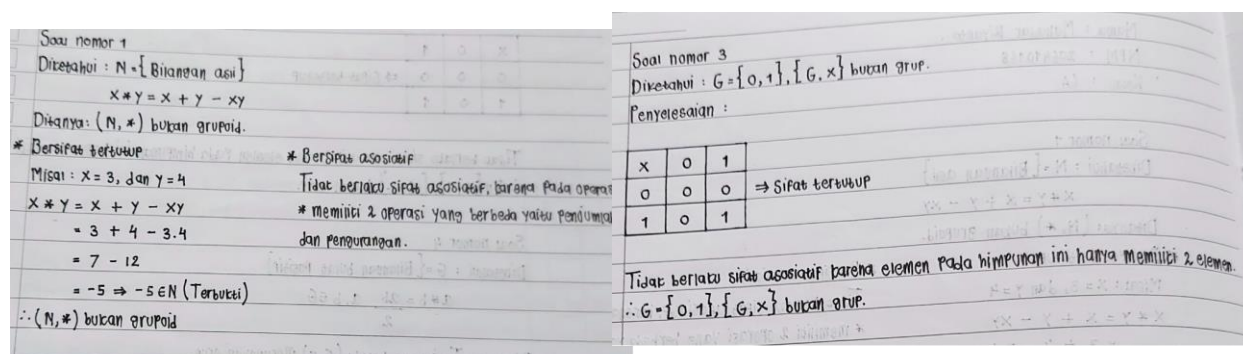 Soal nomor 1
Diketahui : N = { Bilangan asli }
x * y = x + y - xy
Ditanya : (N, *) bukan grupoid.
* Bersifat tertutup
Misal : x = 3, dan y = 4
x * y = x + y - xy
= 3 + 4 - 3.4
= 7 - 12
= -5 ⇒ -5 ∈ N (Terbukti)
∴ (N, *) bukan grupoid
* Bersifat asosiatif
Tidak berlaku sifat asosiatif, karena pada operasi
* memiliki 2 operasi yang berbeda yaitu penjumlahan
dan pengurangan.
Soal nomor 3
Diketahui : G = {0, 1}, {G, x} bukan grup.
Penyelesaian :
x 0 1
0 0 0 ⇒ Sifat tertutup
1 0 1
Tidak berlaku sifat asosiatif karena elemen pada himpunan ini hanya memiliki 2 elemen.
∴ G = {0, 1}, {G, x} bukan grup.